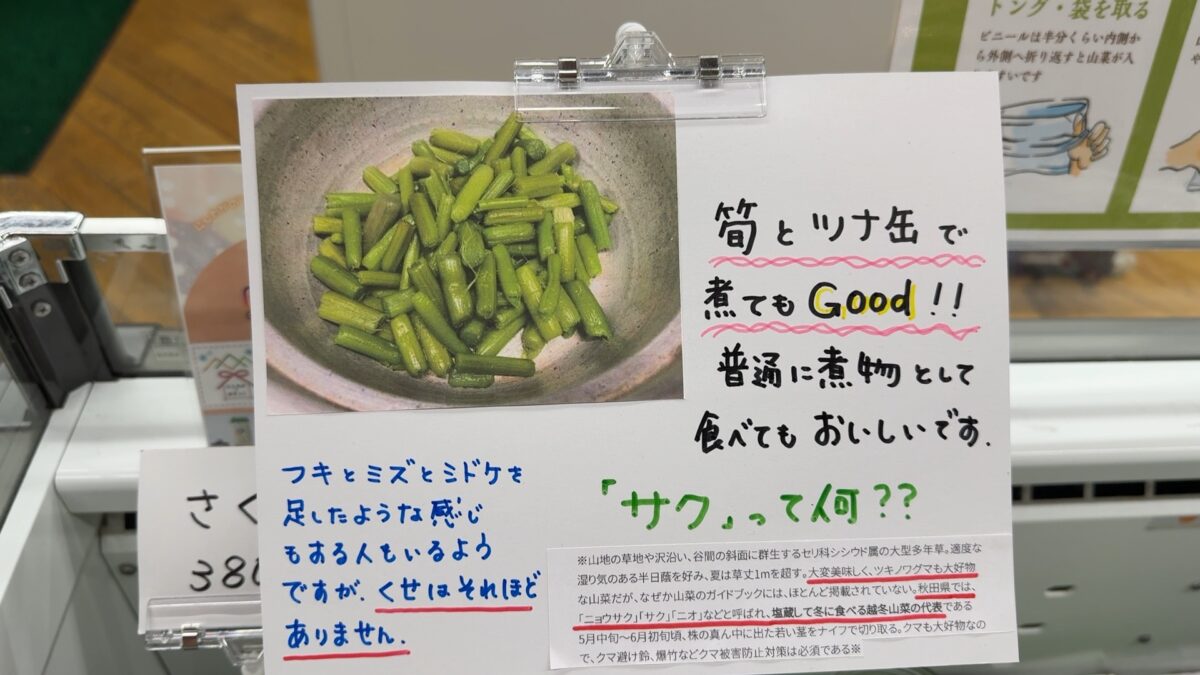 トング・袋を取る
ビニールは半分くらい内側か
ら外側へ折り返すと山菜が入
すいです
筍とツナ缶で
煮てもGood!!
普通に煮物として
食べてもおいしいです.
フキとミズとミドケを
足したような感じ
もする人もいるよう
ですが、くせはそれほど
ありません.
「サク」って何??
※山地の草地や沢沿い、谷間の斜面に群生するセリ科シシウド属の大型多年草。適度な
湿り気のある半日蔭を好み、夏は草丈1mを超す。大変美味しく、ツキノワグマも大好物
な山菜だが、なぜか山菜のガイドブックには、ほとんど掲載されていない。秋田県では、
「ニョウサク」「サク」「ニオ」などと呼ばれ、塩蔵して冬に食べる越冬山菜の代表である
5月中旬～6月初旬頃、株の真ん中に出た若い茎をナイフで切り取る。クマも大好物なの
で、クマ避け鈴、爆竹などクマ被害防止対策は必須である※
さく
380